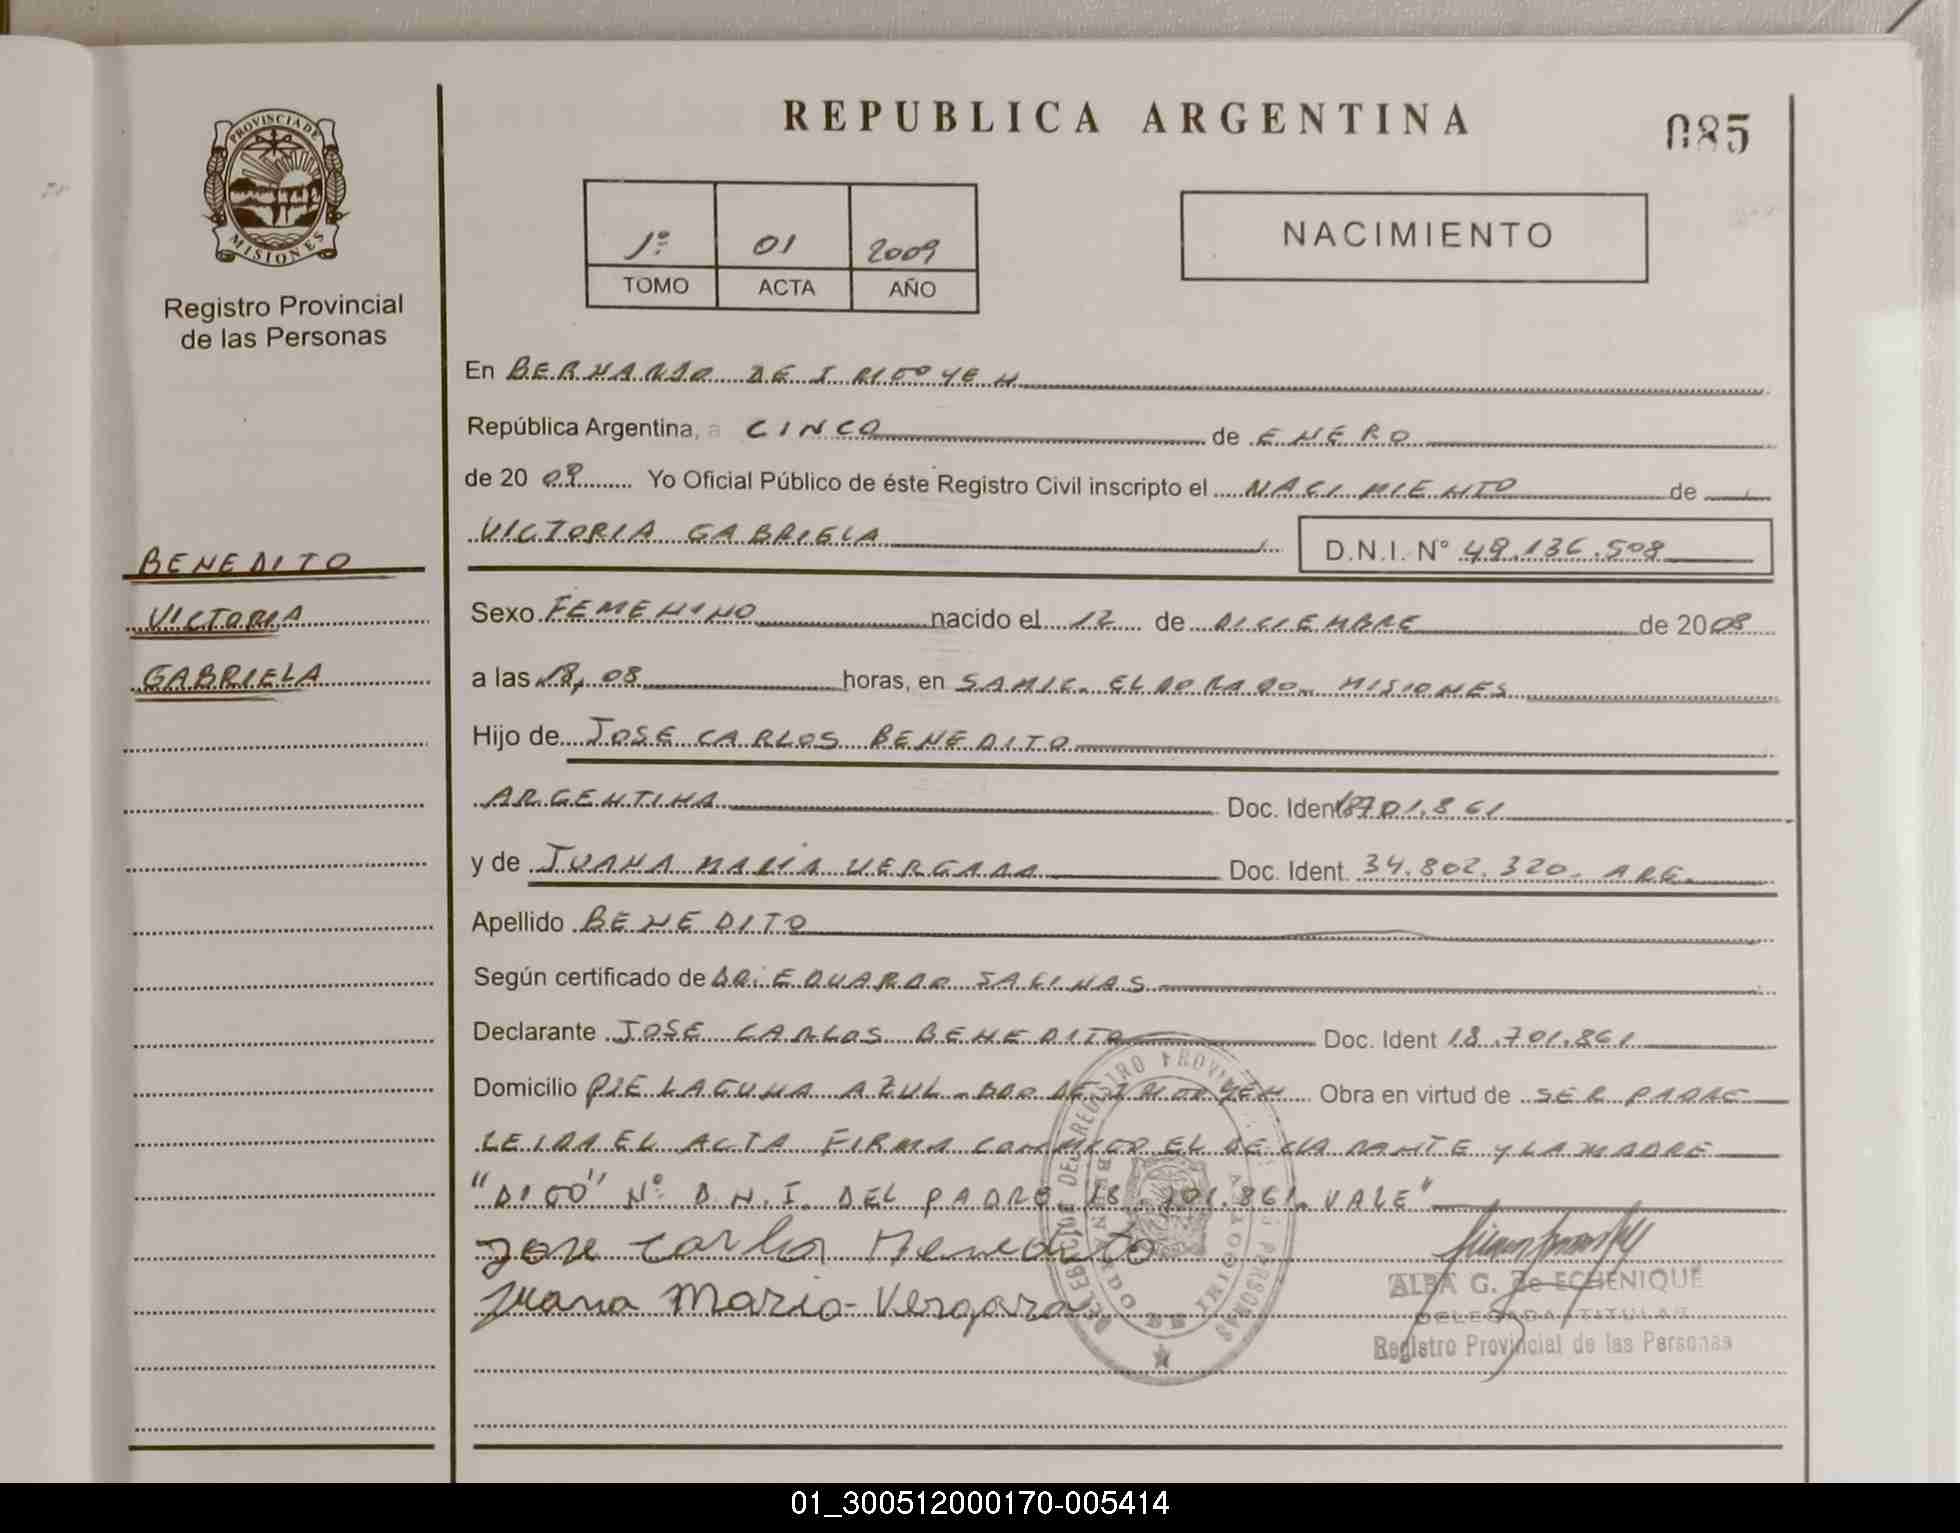 REPUBLICA ARGENTINA
085
PROVINCIA DE
MISIONES
Registro Provincial
de las Personas
1º 01 2009
TOMO ACTA AÑO
NACIMIENTO
En BERNARDO DE IRIGOYEN
República Argentina, a CINCO de ENERO
de 20 09 Yo Oficial Público de éste Registro Civil inscripto el NACIMIENTO de
VICTORIA GABRIELA D.N.I. N° 49.136.508
BENEDITO
VICTORIA
GABRIELA
Sexo FEMENINO nacido el 12 de DICIEMBRE de 2008
a las 18,08 horas, en SAMIC. ELDORADO. MISIONES
Hijo de JOSE CARLOS BENEDITO
ARGENTINA Doc. Ident 701.861
y de JUANA MARÍA VERGARA Doc. Ident. 34.802.320. ARG.
Apellido BENEDITO
Según certificado de DR. EDUARDO SALINAS
Declarante JOSE CARLOS BENEDITO Doc. Ident 18.701.861
Domicilio PJE LAGUNA AZUL - BDO DE IRIGOYEN Obra en virtud de SER PADRE
LEIDA EL ACTA FIRMA CONMIGO EL DECLARANTE Y LA MADRE
"DIGO" Nº D.N.I. DEL PADRE 18.701.861. VALE"
Jose Carlos Benedito
Juana Maria Vergara
ALBA G. De ECHENIQUE
DELEGADA TITULAR
Registro Provincial de las Personas
01_300512000170-005414